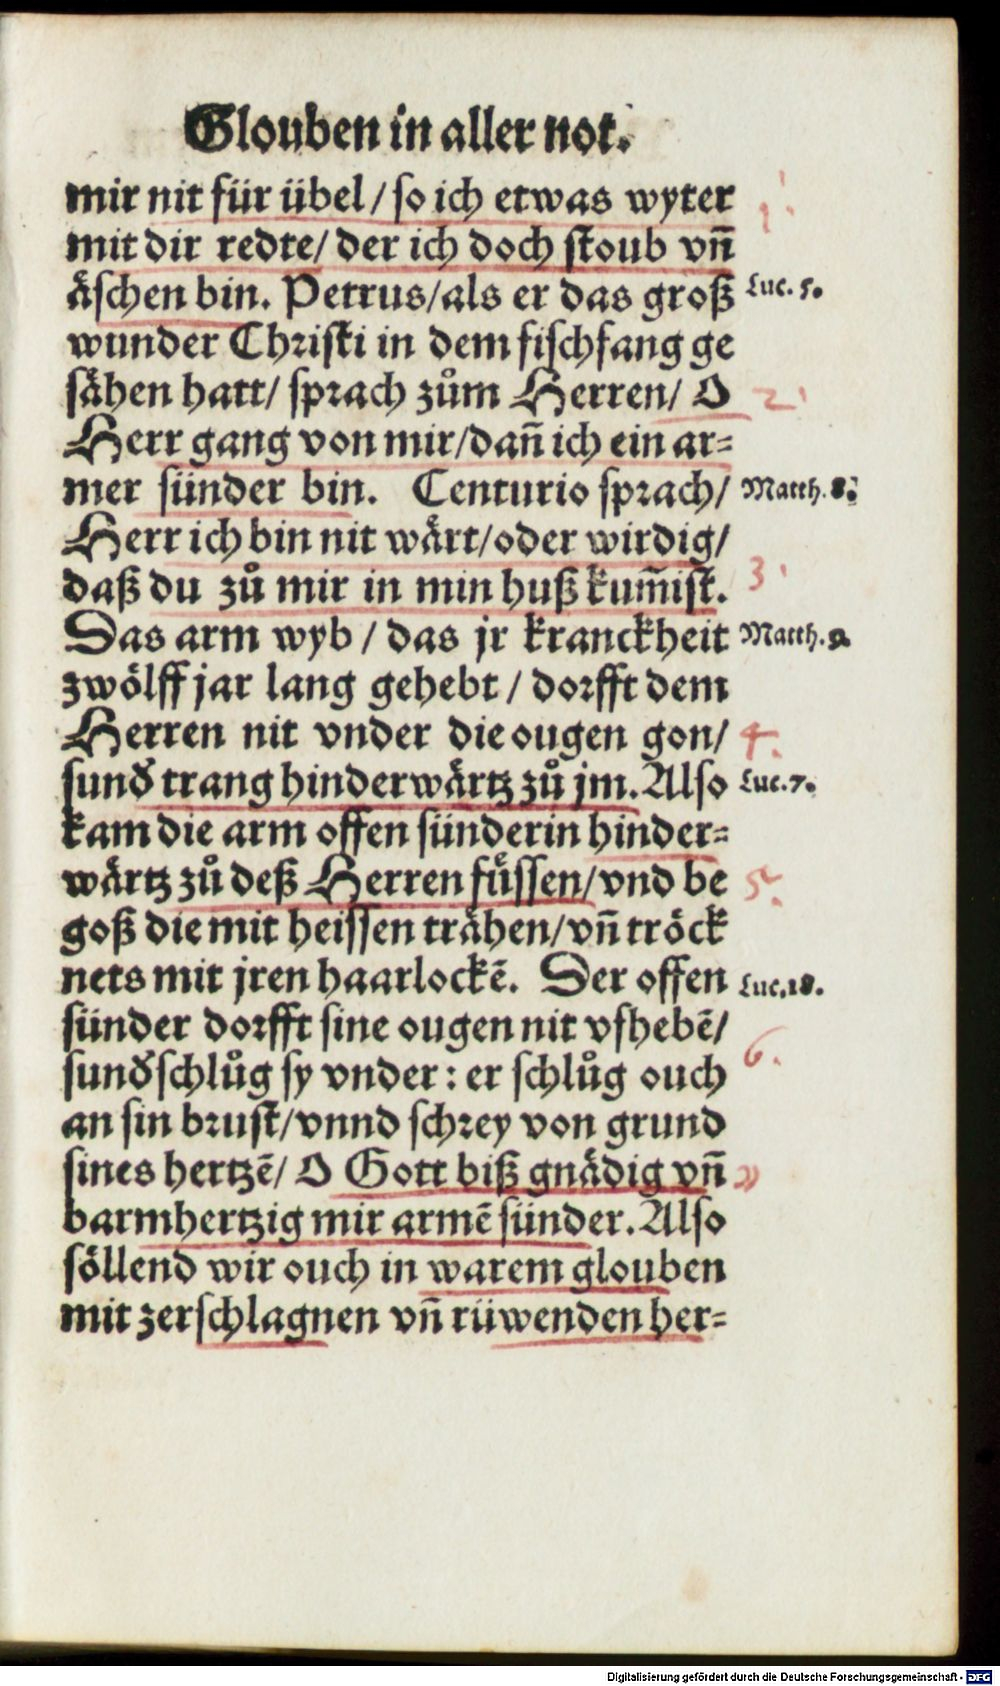 Glouben in aller not.
mir nit für übel / so ich etwas wyter 1.
mit dir redte / der ich doch stoub vñ
äschen bin. Petrus / als er das groß Luc. 5.
wunder Christi in dem fischfang ge
sähen hatt / sprach zům Herren / O 2.
Herr gang von mir / dañ ich ein ar=
mer sünder bin. Centurio sprach / Matth. 8.
Herr ich bin nit wärt / oder wirdig /
daß du zů mir in min huß kum̃ist. 3.
Das arm wyb / das jr kranckheit Matth. 9.
zwölff jar lang gehebt / dorfft dem
Herren nit vnder die ougen gon / 4.
sunđ trang hinderwärtz zů jm. Also Luc. 7.
kam die arm offen sünderin hinder=
wärtz zů deß Herren füssen / vnd be 5.
goß die mit heissen trähen / vñ tröck
nets mit jren haarlockẽ. Der offen Luc. 18.
sünder dorfft sine ougen nit vfhebẽ /
sunđ schlůg sy vnder : er schlůg ouch 6.
an sin brust / vnnd schrey von grund
sines hertzẽ / O Gott biß gnädig vñ
barmhertzig mir armẽ sünder. Also
söllend wir ouch in warem glouben
mit zerschlagnen vñ rüwenden her=
Digitalisierung gefördert durch die Deutsche Forschungsgemeinschaft - DFG